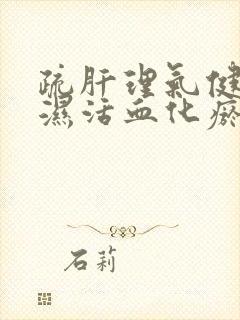 疏肝理氣健
濕活血化瘀
石莉